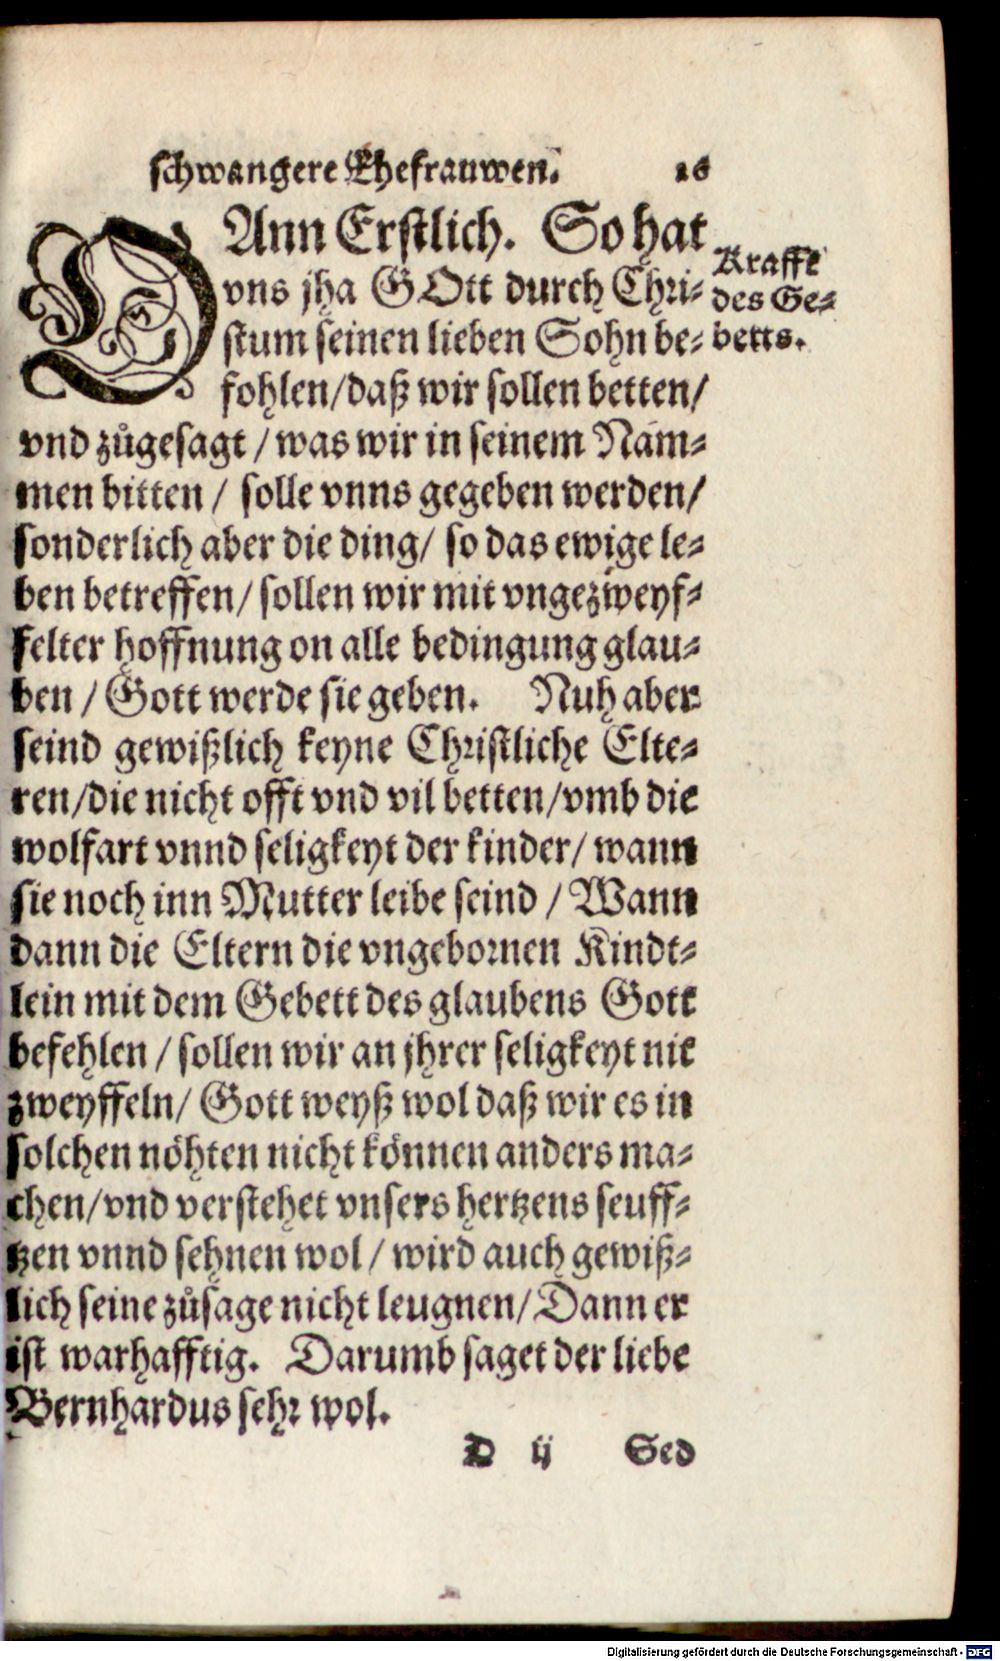 schwangere Ehefrauwen. 26
DAnn Erstlich. So hat
vns jha GOtt durch Chri-
stum seinen lieben Sohn be-
fohlen/daß wir sollen betten/
Krafft
des Ge-
betts.
vnd zůgesagt / was wir in seinem Nam-
men bitten / solle vnns gegeben werden/
sonderlich aber die ding/ so das ewige le-
ben betreffen/ sollen wir mit vngezweyf-
felter hoffnung on alle bedingung glau-
ben / Gott werde sie geben. Nuh aber
seind gewißlich keyne Christliche Elte-
ren/die nicht offt vnd vil betten/vmb die
wolfart vnnd seligkeyt der kinder/ wann
sie noch inn Mutter leibe seind / Wann
dann die Eltern die vngebornen Kindt-
lein mit dem Gebett des glaubens Gott
befehlen / sollen wir an jhrer seligkeyt nit
zweyffeln/ Gott weyß wol daß wir es in
solchen nöhten nicht können anders ma-
chen/vnd verstehet vnsers hertzens seuff-
tzen vnnd sehnen wol / wird auch gewiß-
lich seine zůsage nicht leugnen/ Dann er
ist warhafftig. Darumb saget der liebe
Bernhardus sehr wol.
D ij Sed
Digitalisierung gefördert durch die Deutsche Forschungsgemeinschaft - DFG